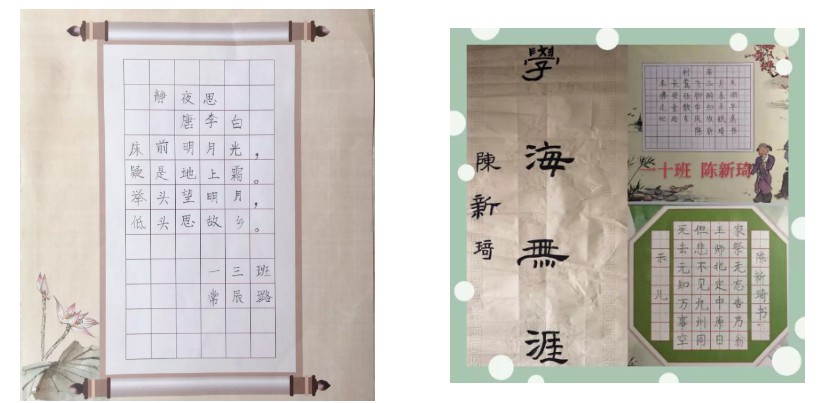 静夜思
唐李白
床前明月光，
疑是地上霜。
举头望明月，
低头思故乡。
一三班
常辰璐
學海無涯
陳新琦
一十班 陈新琦
示儿
死去元知万事空
但悲不见九州同
王师北定中原日
家祭无忘告乃翁
陈新琦书